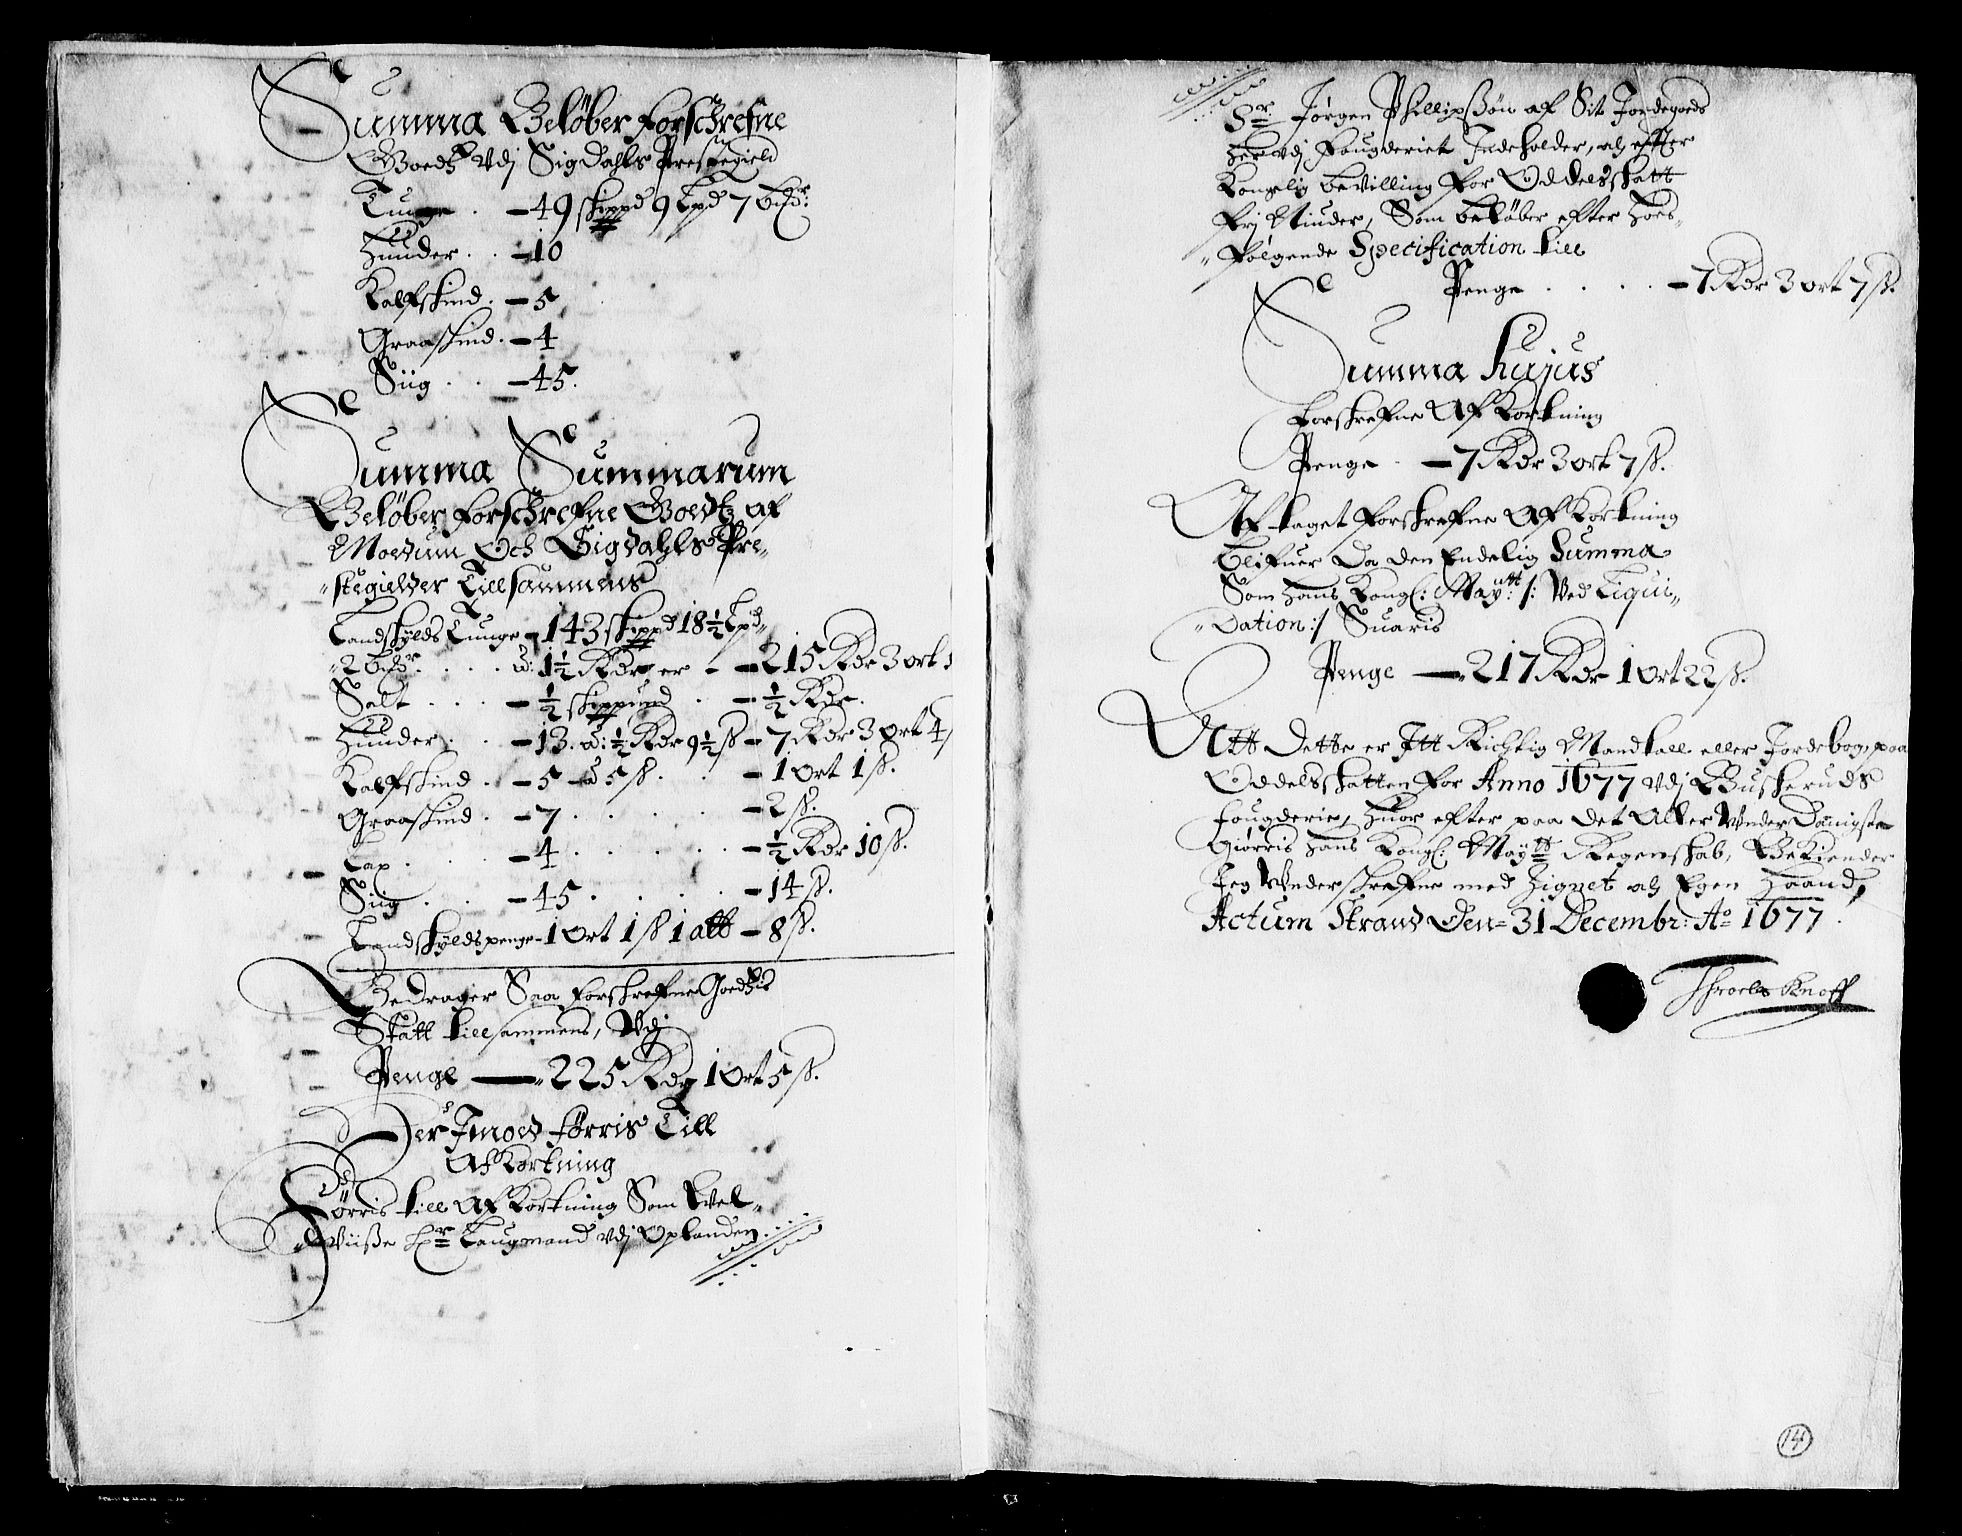 Summa Beløber forschrefne
Goedtz vdj Sigdahls Prestegield
Tunge . -49 skippd 9 Lpd 7 bdr:
Huuder . . -10
Kalfskind . -5
Graaskind . -4
Siig . . -45.
Summa Summarum
Beløber forschrefne Goedtz af
Moedum Och Sigdahls Pre„
„stegielder Tillsammens
Landskylds Tunge -143 skippd 18½ Lpd„
„2 bdr . . . . â: 1½ Rdr, er - -215 Rdr 3 ort
Salt . . . -½ skippund . -½ Rdr.
Huuder . . -13. â: ½ Rdr 9½ ß -7 Rdr 3 ort 4
Kalfskind . -5 â 5 ß. . . -1 Ort 1 ß.
Graaskind . -7 . . . . . -2 ß.
Lax . . . -4 . . . . . -½ Rdr 10 ß.
Siig . . -45 . . . . -14 ß.
Landskylds penge -1 Ort 1 ß 1 alb -8 ß.
Bedrager Saa forskrefne Goedtzis
Skatt tillsammens, Vdj
Penge — „225 Rdr 1 Ort 5 ß.
Der Imoed føris Till
Afkortning
Føris till Afkortning Som Vel„
„Viiße Hr Laugmand vdj Oplanden
Sr Jørgen Phillipßøn af Sit Jordegoeds
her vdj Fougderiet Indeholder, och efter
Kongelig bevilling for Oddelsskatt
frj Niuder, Som beløber efter hoes„
„følgende Specification till
Penge . . . . -7 Rdr 3 ort 7 ß.
Summa hujus
forskrefne Afkortning
Penge . -7 Rdr 3 ort 7 ß.
Aftaget forskrefne Afkortning
blifuer Da den Endelig Summa
Som hans Kongl: Mayttt /: Ved Liqui„
„dation :/ Suaris
Penge — „217 Rdr 1 Ort 22 ß.
Att dette er Itt Richtig Mandtall eller Jordebog, paa
Oddelsskatten for Anno 1677 vdj Buskeruds
fougderie, huor efter paa det Aller Vnder Danigste
Giørris hans Kongl: Maytt Regenskab, Bekiender
Jeg Vnderskrefne med Zignet och Egen haand,
Actum Strand Den= 31 Decembr: Ao 1677.
Throels Knoff
14